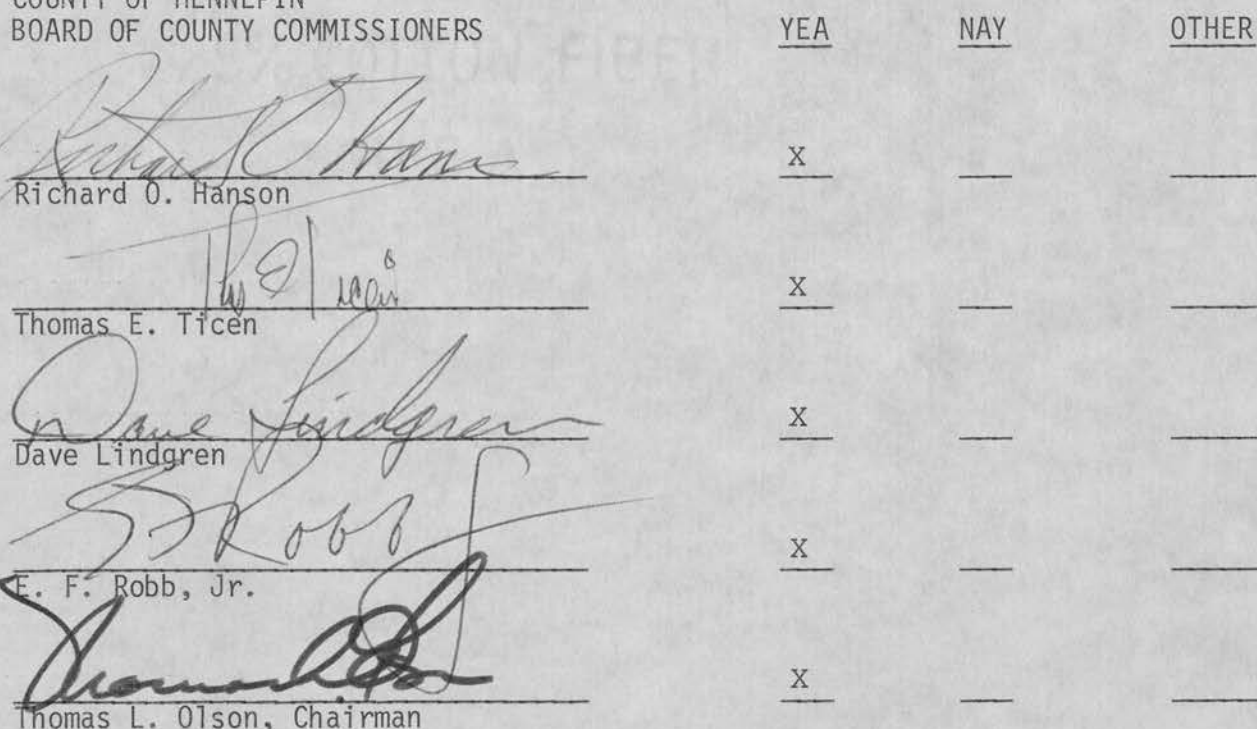 COUNTY OF HENNEPIN
BOARD OF COUNTY COMMISSIONERS YEA NAY OTHER
Richard O Hans
X
Richard O. Hanson
X
Thomas E. Ticen
Dave Lindgren
X
Dave Lindgren
E F Robb Jr
X
E. F. Robb, Jr.
X
Thomas L. Olson, Chairman